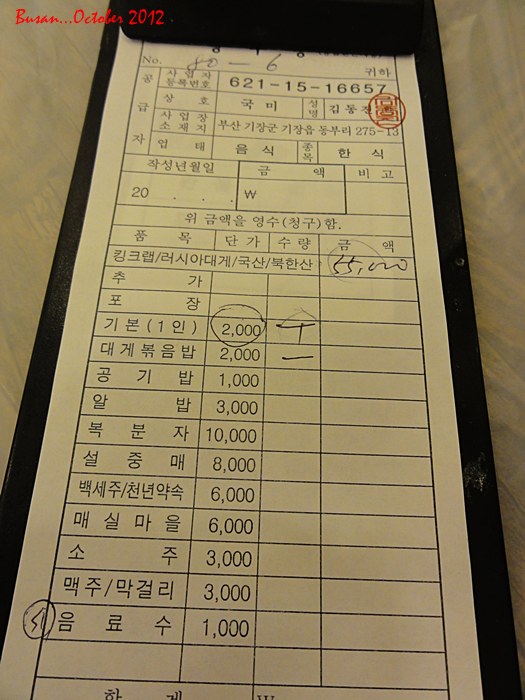 Busan...October 2012
No. 80-6 귀하
공급자
사업자등록번호 621-15-16657
상호 국미 성명 김동진
사업장소재지 부산 기장군 기장읍 동부리 275-13
업태 음식 종목 한식
작성년월일 금액 비고
20 . . . ₩
위 금액을 영수(청구)함.
품목 단가 수량 금액
킹크랩/러시아대게/국산/북한산 55,000
추가
포장
기본(1인) 2,000
대게볶음밥 2,000 一
공기밥 1,000
알밥 3,000
복분자 10,000
설중매 8,000
백세주/천년약속 6,000
매실마을 6,000
소주 3,000
맥주/막걸리 3,000
음료수 1,000
합계 W